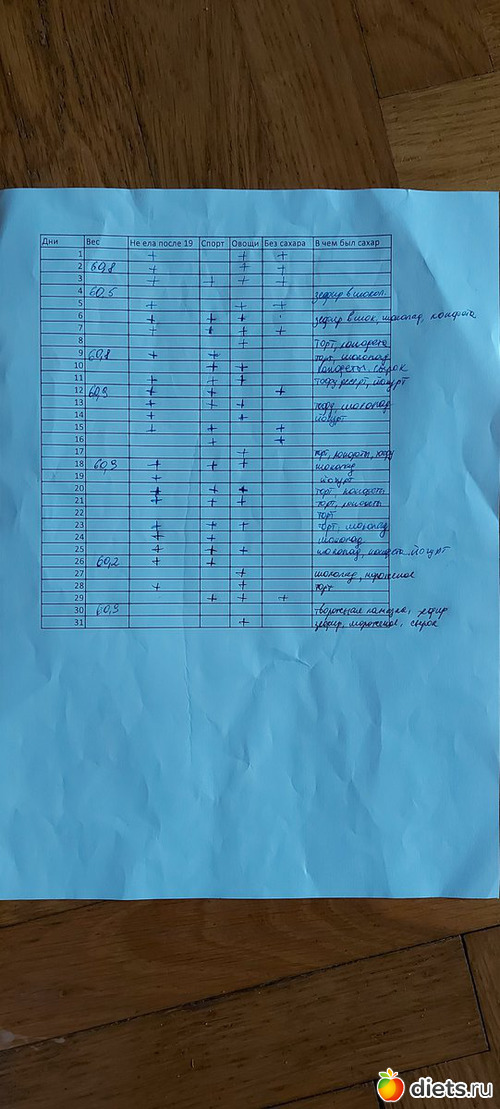 Дни Вес Не ела после 19 Спорт Овощи Без сахара В чем был сахар
1 + + +
2 60,8 + + +
3 + + + +
4 60,5 зефир в шокол.
5 + + +
6 + + + зефир в шок, шоколад, конфета
7 + + + +
8 + торт, конфета
9 60,8 + + торт, шоколад
10 + + конфеты, сырок
11 + + + десерт, йогурт
12 60,9 + + +
13 + + + шоколад
14 + + йогурт
15 + + +
16 + +
17 + торт, конфеты,
18 60,9 + + + шоколад
19 + йогурт
20 + + + торт, конфеты
21 + + + торт, конфеты
22 торт
23 + + + торт, шоколад
24 + + шоколад
25 + + + шоколад, конфета, йогурт
26 60,2 + +
27 + шоколад, мороженое
28 + + торт
29 + + +
30 60,9 творожная зефир
31 + зефир, мороженое, сырок
diets.ru